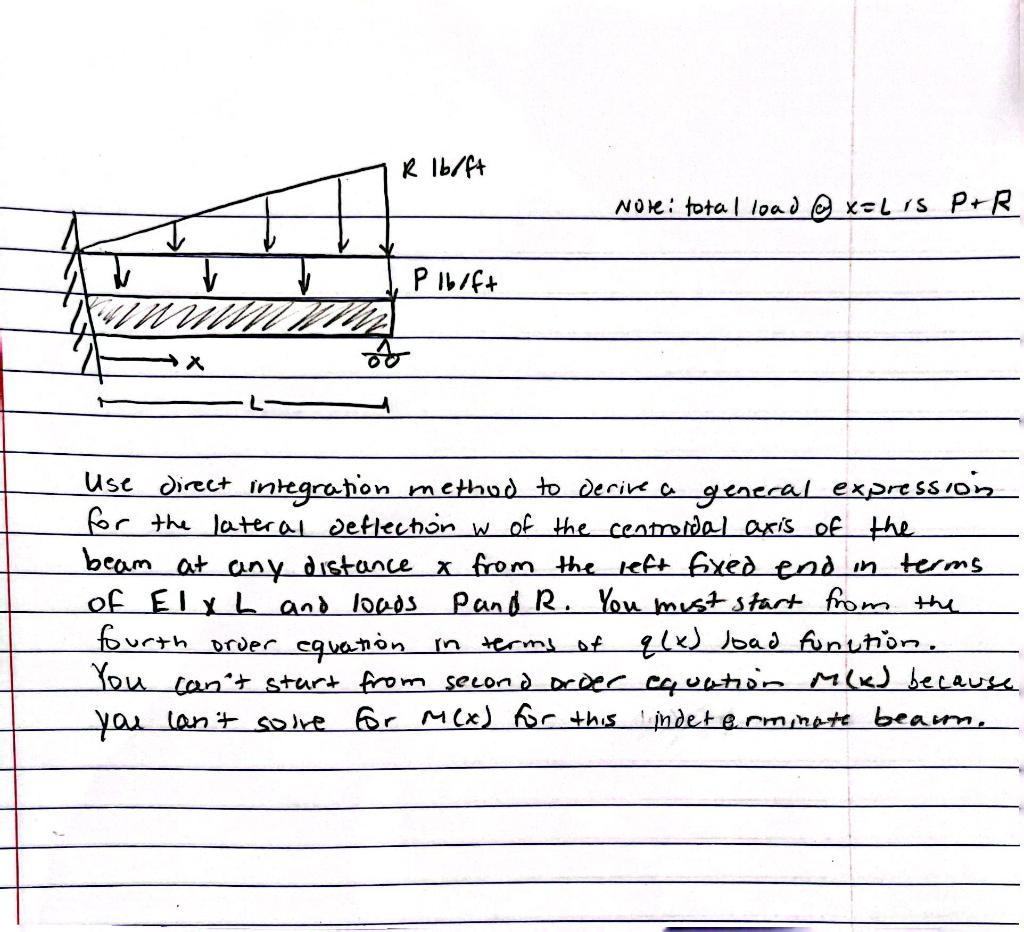 R lb/ft
Note: total load @ x=L is P+R
P lb/ft
x
L
Use direct integration method to derive a general expression
for the lateral deflection w of the centroidal axis of the
beam at any distance x from the left fixed end in terms
of EI x L and loads P and R. You must start from the
fourth order equation in terms of q(x) load function.
You can't start from second order equation M(x) because
you can't solve for M(x) for this indeterminate beam.